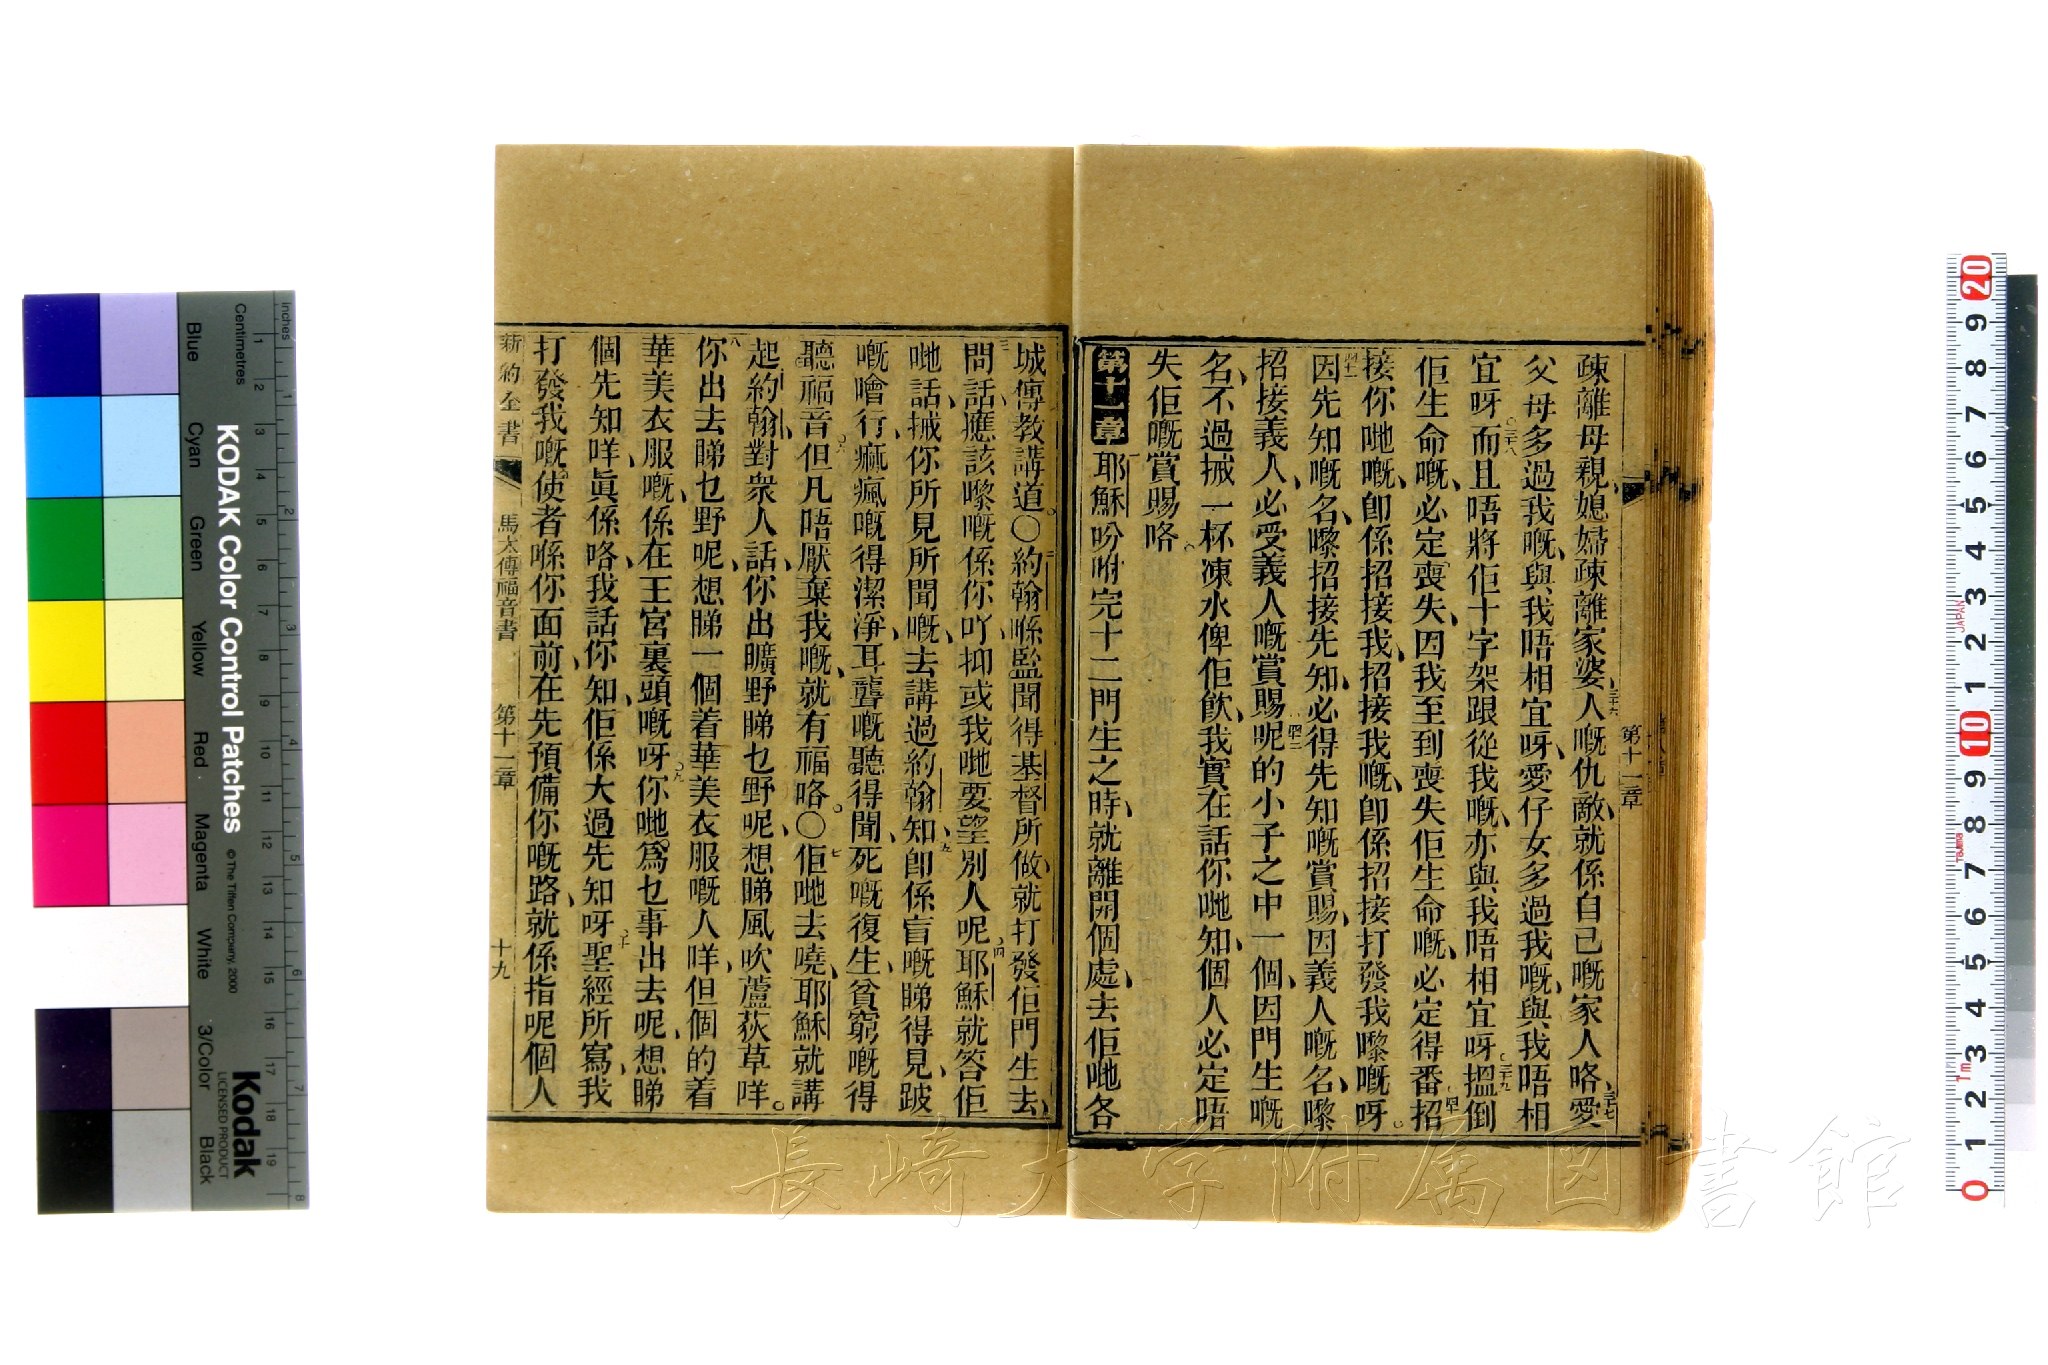 第十一章
疎離母親、媳婦疎離家婆、三十六人嘅仇敵、就係自己嘅家人咯、三十七愛
父母多過我嘅、與我唔相宜呀、愛仔女多過我嘅、與我唔相
宜呀、三十八而且唔將佢十字架跟從我嘅、亦與我唔相宜呀、三十九搵倒
佢生命嘅、必定喪失、因我至到喪失佢生命嘅、必定得番、四十招
接你哋嘅、即係招接我、招接我嘅、即係招接打發我嚟嘅呀。
四十一因先知嘅名、嚟招接先知、必得先知嘅賞賜、因義人嘅名、嚟
招接義人、必受義人嘅賞賜、四十二呢的小子之中一個、因門生嘅
名、不過搣一杯凍水俾佢飲、我實在話你哋知、個人必定唔
失佢嘅賞賜咯。
第十一章 一耶穌吩咐完十二門生之時、就離開個處、去佢哋各
城傳教講道。〇二約翰喺監聞得基督所做、就打發佢門生去、
三問話、應該嚟嘅係你吖、抑或我哋要望別人呢、四耶穌就答佢
哋話、搣你所見所聞嘅、去講過約翰知、五即係盲嘅睇得見、跛
嘅噲行、痲瘋嘅得潔淨、耳聾嘅聽得聞、死嘅復生、貧窮嘅得
聽福音、六但凡唔厭棄我嘅、就有福咯。〇七佢哋去嘵、耶穌就講
起約翰、對衆人話、你出曠野睇乜野呢、想睇風吹蘆荻草咩。
八你出去睇乜野呢、想睇一個着華美衣服嘅人咩、但個的着
華美衣服嘅、係在王宮裏頭嘅呀、九你哋爲乜事出去呢、想睇
個先知咩、眞係咯、我話你知、佢係大過先知呀、十聖經所寫、我
打發我嘅使者喺你面前、在先預備你嘅路、就係指呢個人
新約全書 馬太傳福音書 第十一章 十九
長崎大学附属図書館
KODAK Color Control Patches
© The Tiffen Company, 2000
Kodak
LICENSED PRODUCT
Inches
Centimetres
Blue
Cyan
Green
Yellow
Red
Magenta
White
3/Color
Black
JAPAN